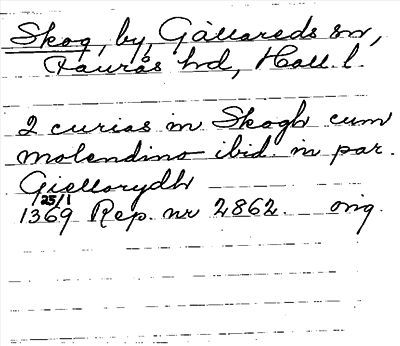 Skog, by, Gällareds sn,
Faurås hd, Hall. l.
2 curias in Skogh cum
molendino ibid. in par.
Giellarydh
25/1
1369 Rep. nr 2862. orig.